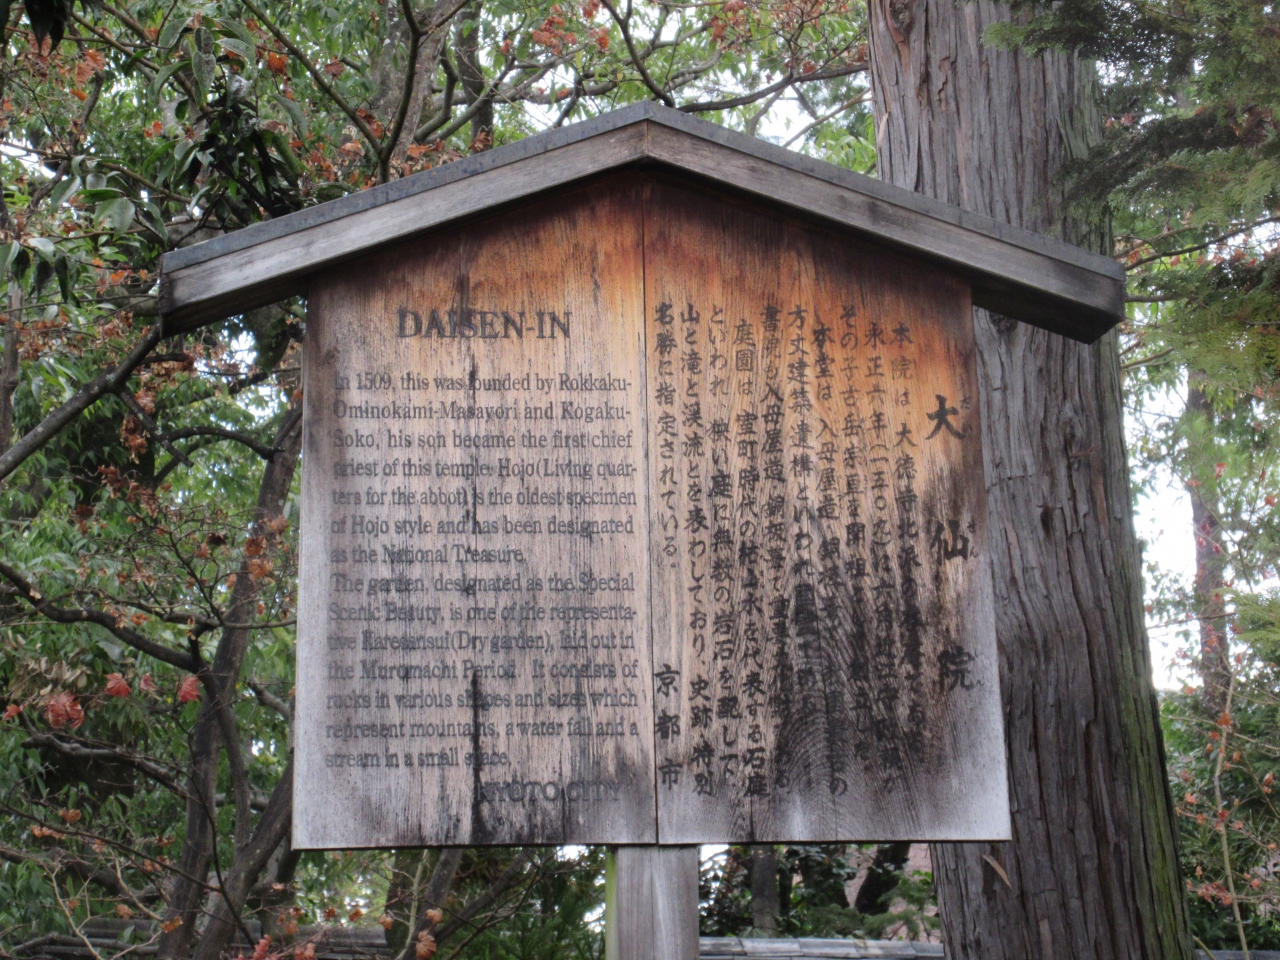 DAISEN-IN
In 1509, this was founded by Rokkaku-
Ominokami-Masayori and Kogaku-
Soko, his son became the first chief
priest of this temple. Hojo (Living quar-
ters for the abbot) is the oldest specimen
of Hojo style and has been designated
as the National Treasure.
The garden, designated as the Special
Scenic Beauty, is one of the representa-
tive Karesansui (Dry garden), laid out in
the Muromachi Period. It consists of
rocks in various shapes and sizes which
represent mountains, a water fall and a
stream in a small space.
KYOTO CITY
大仙院
本院は大徳寺北
永正六年(一五〇九)に
その子古岳宗亘を開祖
本堂は、入母屋造、銅板葺
方丈建築遺構といわれ
書院も入母屋造、銅板葺で
庭園は、室町時代の枯山水を代表する石庭
といわれ、狭い庭に無数の岩石を配して
山と滝と渓流とを表わしており、史跡・特別
名勝に指定されている。
京都市